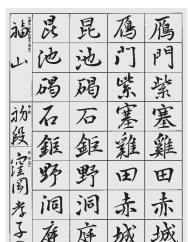 鴈門紫塞雞田赤城
鴈門紫塞雞田赤城
昆池碣石鉅野洞庭
昆池碣石鉅野洞庭
福山 初段 窪園孝子